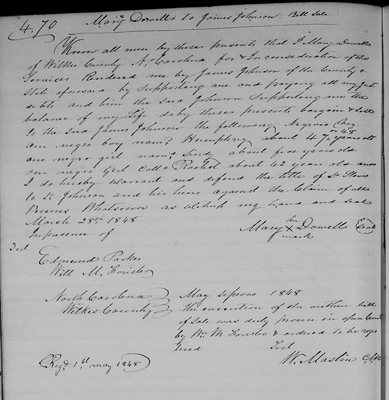 470
Mary Dowell to James Johnson Bill Sale
Know all men by these presents that I Mary Dowell
of Wilkes County N. Carolina for & In consideration of the
Services Rendered me by James Johnson of the County &
State aforesaid by Supporting me and paying all my just
debts and him the said Johnson Supporting me the
balance of my life do by these presents bargain & sell
to the said James Johnson the following Negroes
one negro boy named Humphrey about 47 years old
one negro girl named about five years old
one negro Girl Calld Rachel about 42 year old and
I do hereby warrant and defend the title of Sd
to Sd Johnson and his heirs against the Claim of all
Persons Whatsoever as witness my hand and seal
March 28th 1848
In presence of
her
Mary X Dowell Seal
mark
Test
Edmund Parker
Will M. Forister
North Carolina
Wilkes County
May Sessions 1848
The execution of the within bill
of Sale was duly proven in open Court
by Wm M Forister & ordered to be regis
tered Test
W. Mastin Clk
Regd 1st may 1848